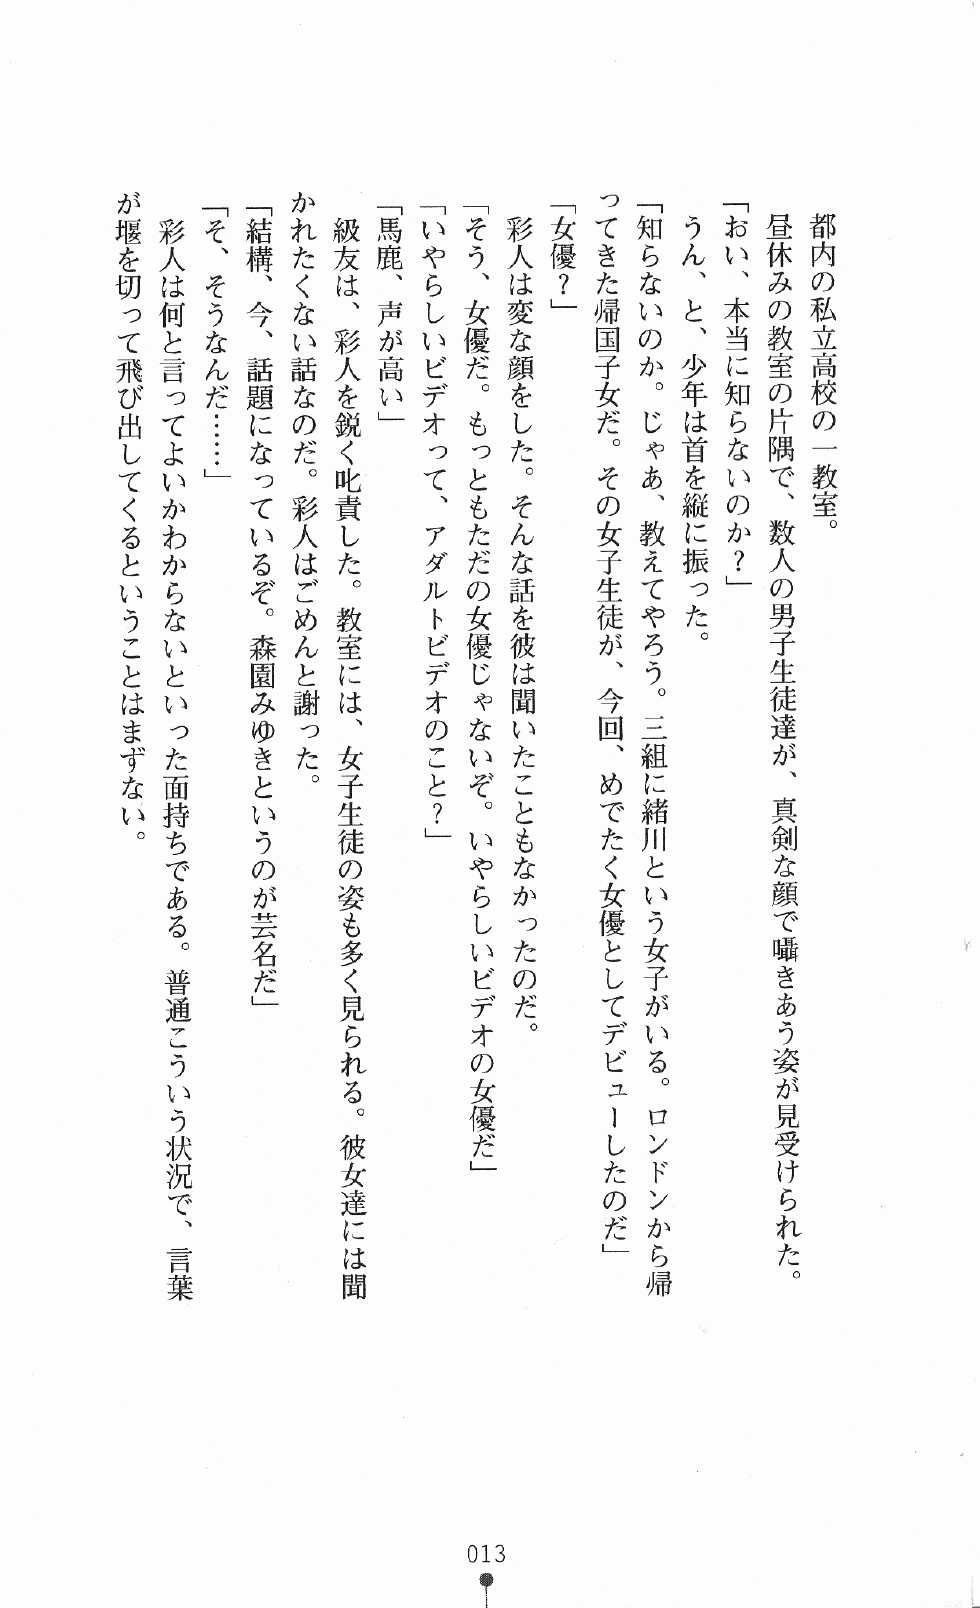 都内の私立高校の一教室。
昼休みの教室の片隅で、数人の男子生徒達が、真剣な顔で囁きあう姿が見受けられた。
「おい、本当に知らないのか？」
うん、と、少年は首を縦に振った。
「知らないのか。じゃあ、教えてやろう。三組に緒川という女子がいる。ロンドンから帰
ってきた帰国子女だ。その女子生徒が、今回、めでたく女優としてデビューしたのだ」
「女優？」
彩人は変な顔をした。そんな話を彼は聞いたこともなかったのだ。
「そう、女優だ。もっともただの女優じゃないぞ。いやらしいビデオの女優だ」
「いやらしいビデオって、アダルトビデオのこと？」
「馬鹿、声が高い」
級友は、彩人を鋭く叱責した。教室には、女子生徒の姿も多く見られる。彼女達には聞
かれたくない話なのだ。彩人はごめんと謝った。
「結構、今、話題になっているぞ。森園みゆきというのが芸名だ」
「そ、そうなんだ……」
彩人は何と言ってよいかわからないといった面持ちである。普通こういう状況で、言葉
が堰を切って飛び出してくるということはまずない。
013